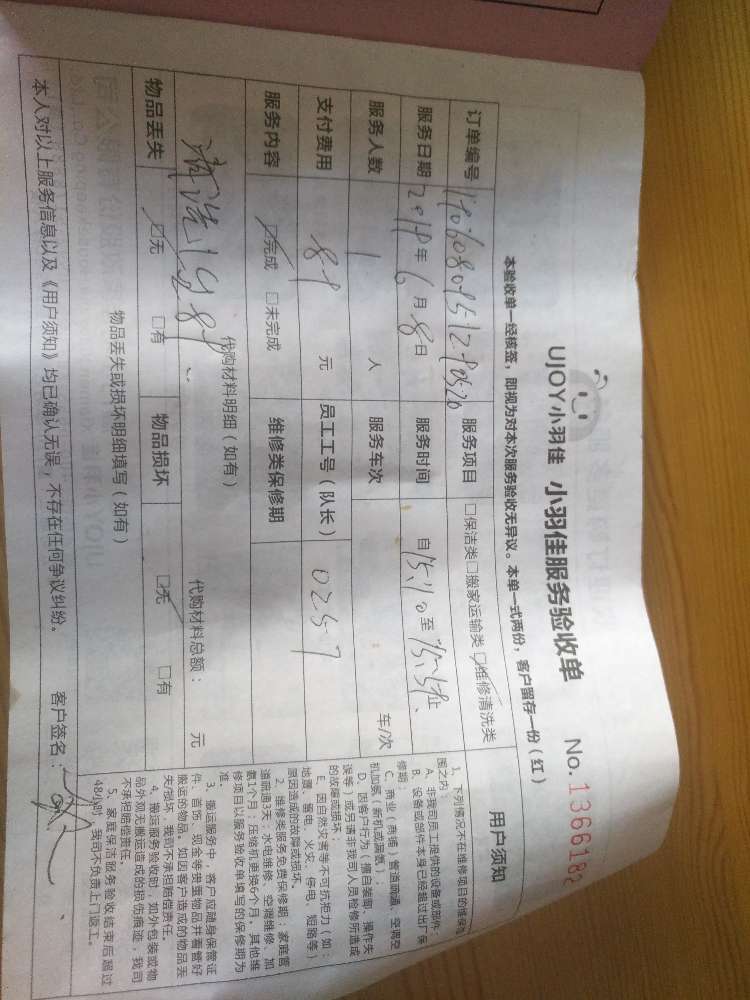 UJOY小羽佳 小羽佳服务验收单 No. 1366182
本验收单一经核签，即视为对本次服务验收无异议。本单一式两份，客户留存一份（红）
订单编号 服务项目 □保洁类□搬家运输类☑维修清洗类
服务日期 年 6 月 8 日 服务时间 自 15:10 至 止
服务人数 1 人 服务车次 车/次
支付费用 89 元 员工工号（队长） 0257
服务内容 ☑完成 □未完成 维修类保修期
代购材料明细（如有） 代购材料总额： 元
清洗 89
物品丢失 ☑无 □有 物品损坏 ☑无 □有
物品丢失或损坏明细填写（如有）
本人对以上服务信息以及《用户须知》均已确认无误，不存在任何争议纠纷。 客户签名：
用户须知
1、下列情况不在维修项目的维保范
围之内：
A、非我司员工提供的设备或部件；
B、设备或部件本身已经超过出厂保
修期；
C、商业（商铺）管道疏通、空调空
机加氨（新机或漏氨）；
D、因客户行为（擅自装卸、操作失
误等）或另请非我司人员检修所造成
的故障或损坏；
E、因自然灾害等不可抗拒力（如：
地震、雷电、火灾、停电、短路等）
原因造成的故障或损坏。
2、维修类服务免费保修期：家庭管
道疏通3天；水电维修、空调维修、加
氨1个月；压缩机更换6个月，其他维
修项目以服务验收单填写的保修期为
准。
3、搬运服务中，客户应随身保管证
件、首饰、现金等贵重物品并看管好
搬运的物品，如因客户造成的物品丢
失/损坏，我司不承担赔偿责任。
4、搬运服务验收时，如外包装或物
品外观无搬运造成的损伤痕迹，我司
不承担赔偿责任。
5、家庭保洁服务验收结束后超过
48小时，我司不负责上门返工。